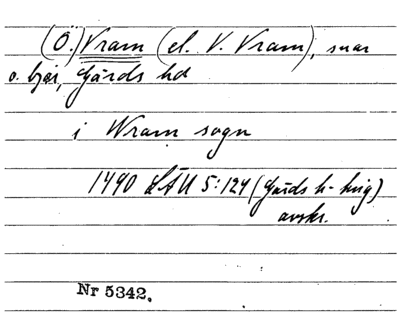 (Ö.) Vram (el. V. Vram), snar
o. byar, Gärds hd
i Wram sogn
1490 LÄU 5:124 (Gärds h-hrig)
avskr.
Nr 5342.